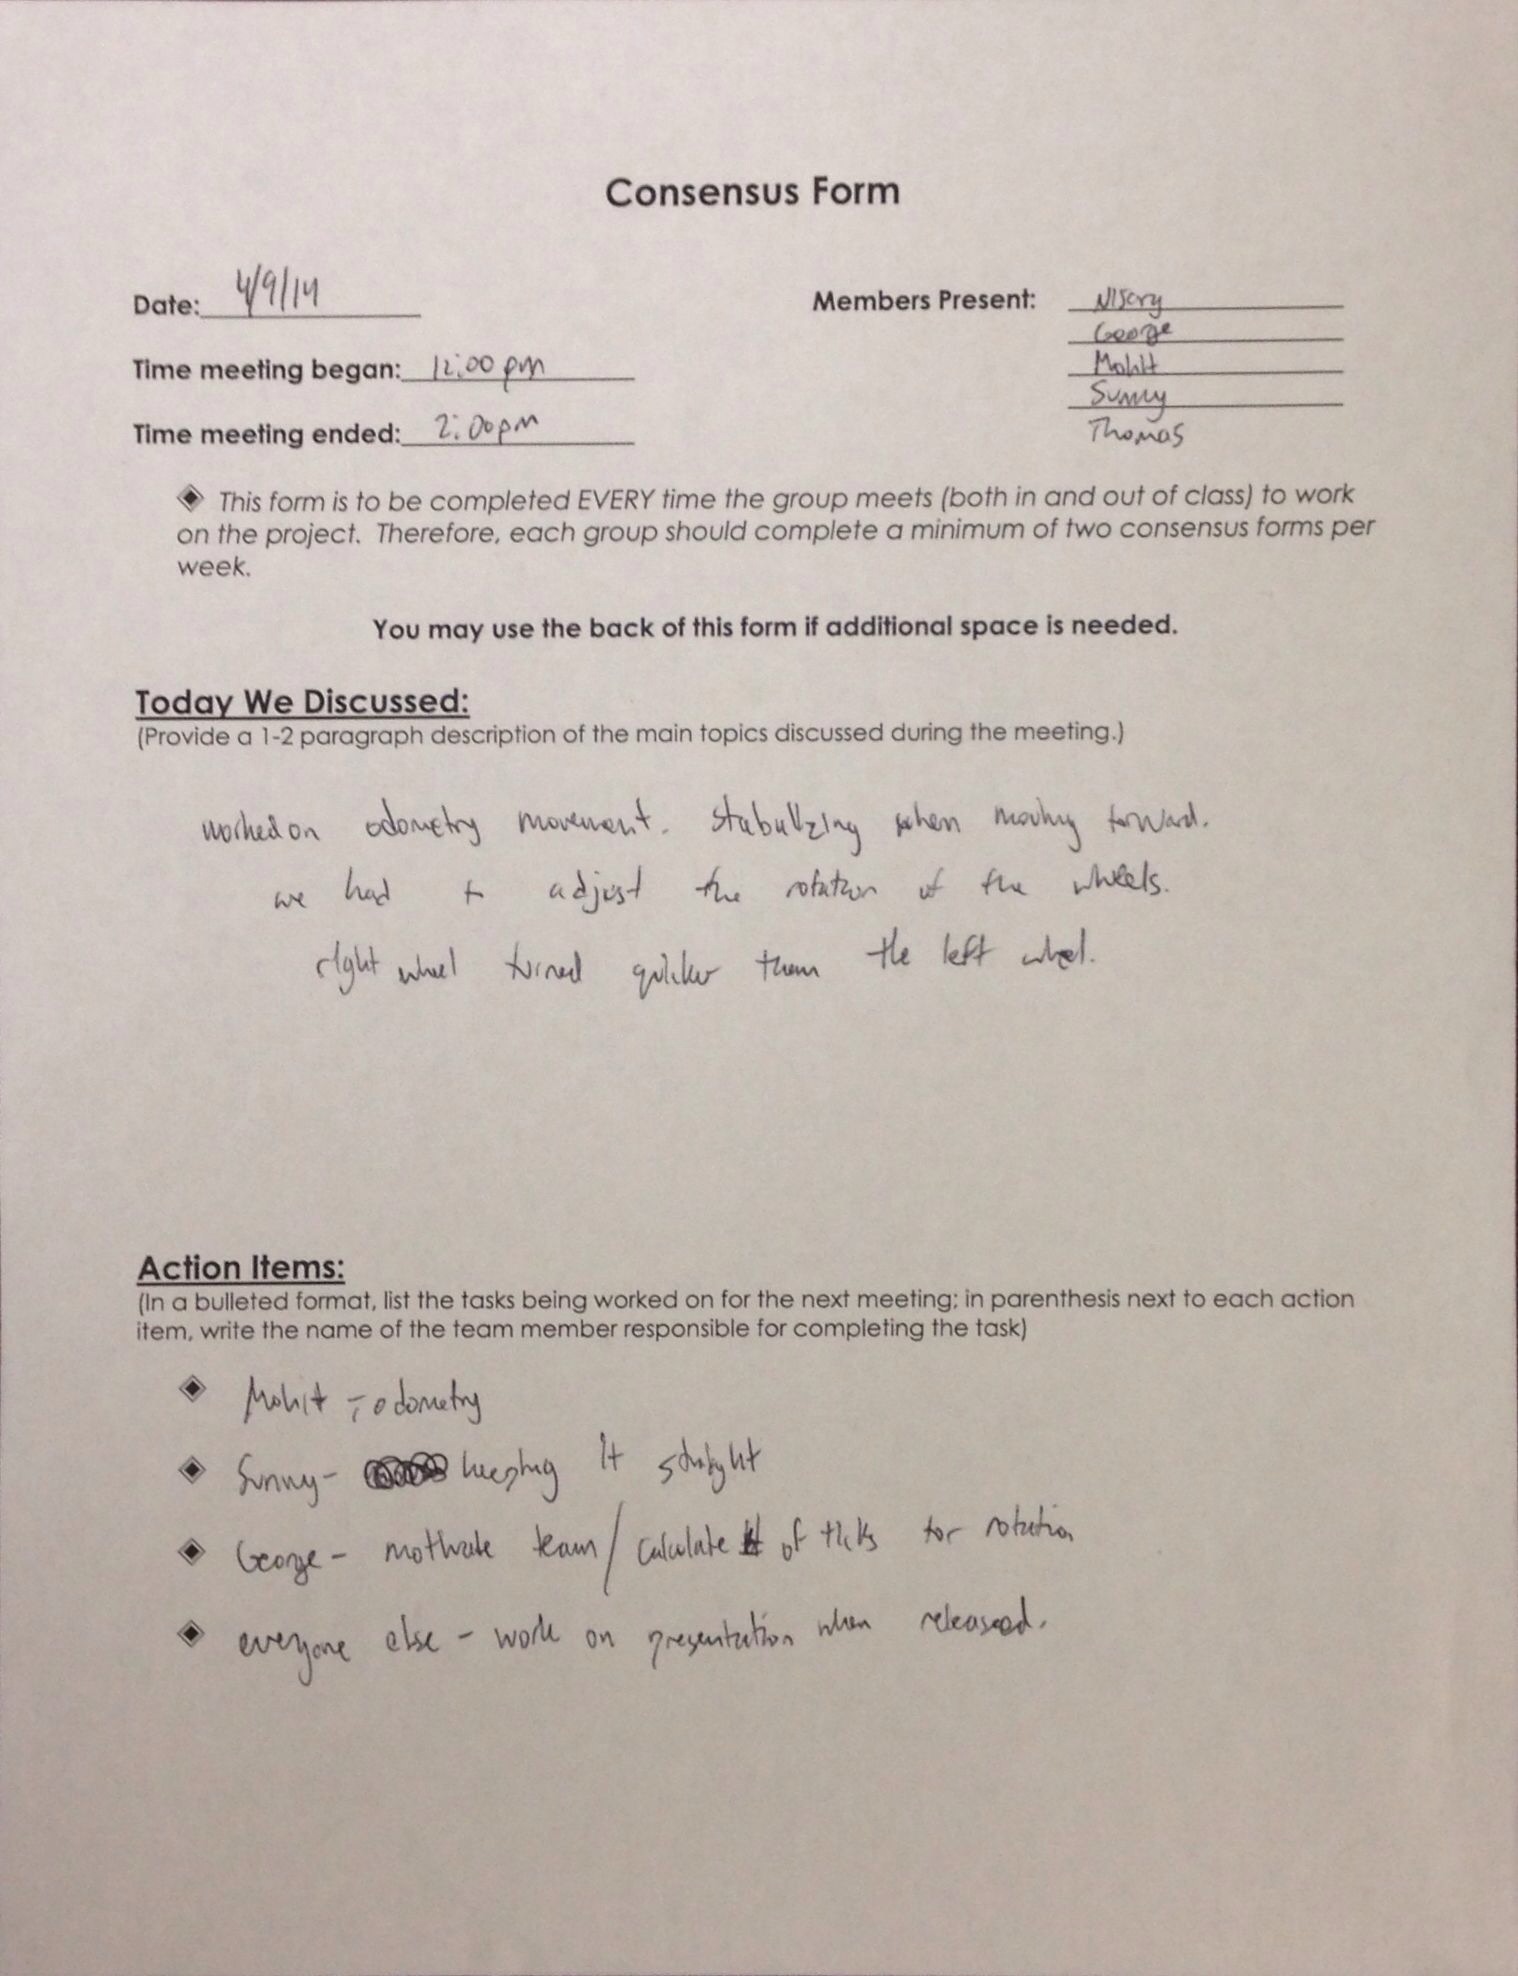 Consensus Form
Date: 4/9/14
Members Present: Nisory
George
Time meeting began: 12:00 pm
Mohit
Sunny
Time meeting ended: 2:00pm
Thomas
◈ This form is to be completed EVERY time the group meets (both in and out of class) to work
on the project. Therefore, each group should complete a minimum of two consensus forms per
week.
You may use the back of this form if additional space is needed.
Today We Discussed:
(Provide a 1-2 paragraph description of the main topics discussed during the meeting.)
worked on odometry movement. Stabullzing when moving forward.
we had to adjust the rotation of the wheels.
right wheel turned quicker then the left wheel.
Action Items:
(In a bulleted format, list the tasks being worked on for the next meeting; in parenthesis next to each action
item, write the name of the team member responsible for completing the task)
◈ Mohit - odometry
◈ Sunny - keeping it straight
◈ George - motivate team / calculate # of ticks for rotation
◈ everyone else - work on presentation when released.